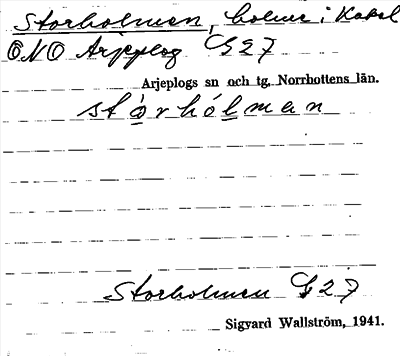 Storholmen, holme i Kakel
ONO Arjeplog G27
Arjeplogs sn och tg, Norrbottens län.
stórhólman
Storholmen G27
Sigvard Wallström, 1941.